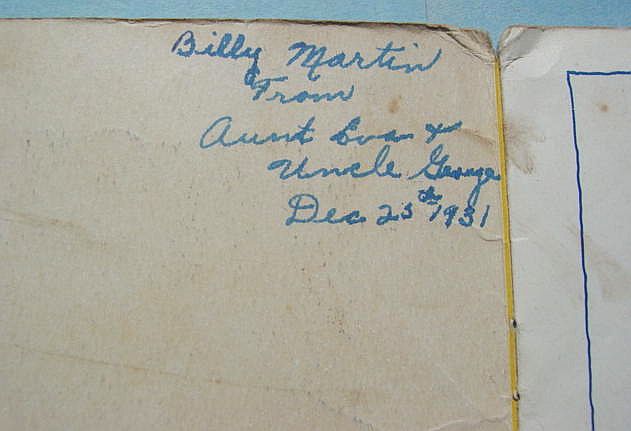 Billy Martin
From
Aunt Eva &
Uncle George
Dec 25th 1931